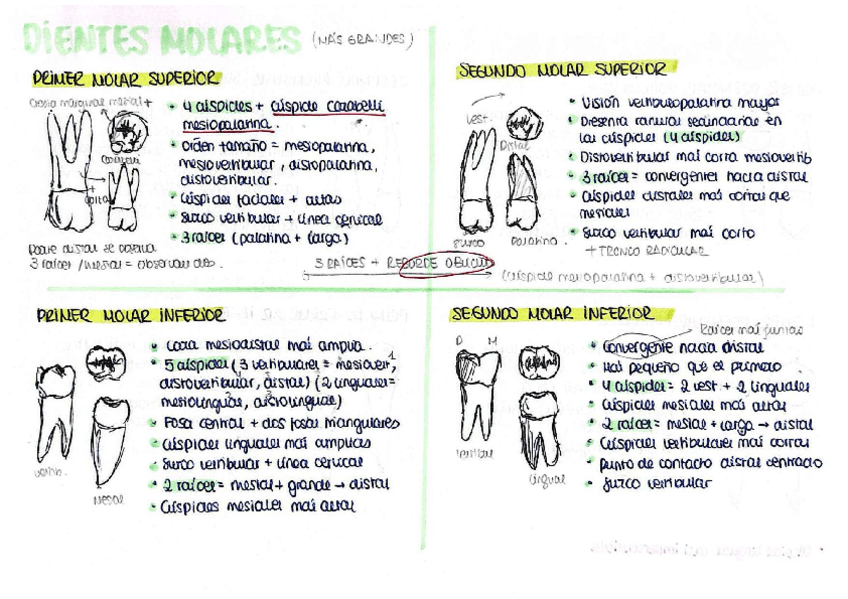 DIENTES MOLARES (MÁS GRANDES)
PRIMER MOLAR SUPERIOR
Cresta marginal mesial +
4 cúspides + cúspide carabelli
mesiopalatina.
Orden tamaño = mesiopalatina,
mesiovestibular, distopalatina,
distovestibular.
Cúspides + altas
Surco vestibular + línea cervical
3 raíces (palatina + larga)
+
corta
Desde distal se observa
3 raíces / mesial = observan dos.
SEGUNDO MOLAR SUPERIOR
Vest.
Distal
Surco
Palatina
Visión vestibulopalatina mayor
Presenta ranuras secundarias en
las cúspides (4 cúspides)
Distovestibular más corta mesiovestib
3 raíces = convergentes hacia distal
Cúspides distales más cortas que
mesiales
Surco vestibular más corto
+ TRONCO RADICULAR
3 RAÍCES + REBORDE OBLICUO
(cúspide mesiopalatina + distovestibular)
PRIMER MOLAR INFERIOR
vestib.
Mesial
Cara mesiodistal más amplia.
5 cúspides (3 vestibulares = mesiovest,
distovestibular, distal) (2 linguales=
mesiolingual, distolingual)
Fosa central + dos fosas triangulares
Cúspides linguales más amplias
Surco vestibular + línea cervical
2 raíces = mesial + grande → distal
Cúspides mesiales más altas
SEGUNDO MOLAR INFERIOR
Raíces más juntas
D M
Vestibular
Lingual
Convergente hacia distal
Más pequeño que el primero
4 cúspides = 2 vest + 2 linguales
Cúspides mesiales más altas
2 raíces = mesial + larga → distal
Cúspides vestibulares más cortas
punto de contacto distal centrado
Surco vestibular